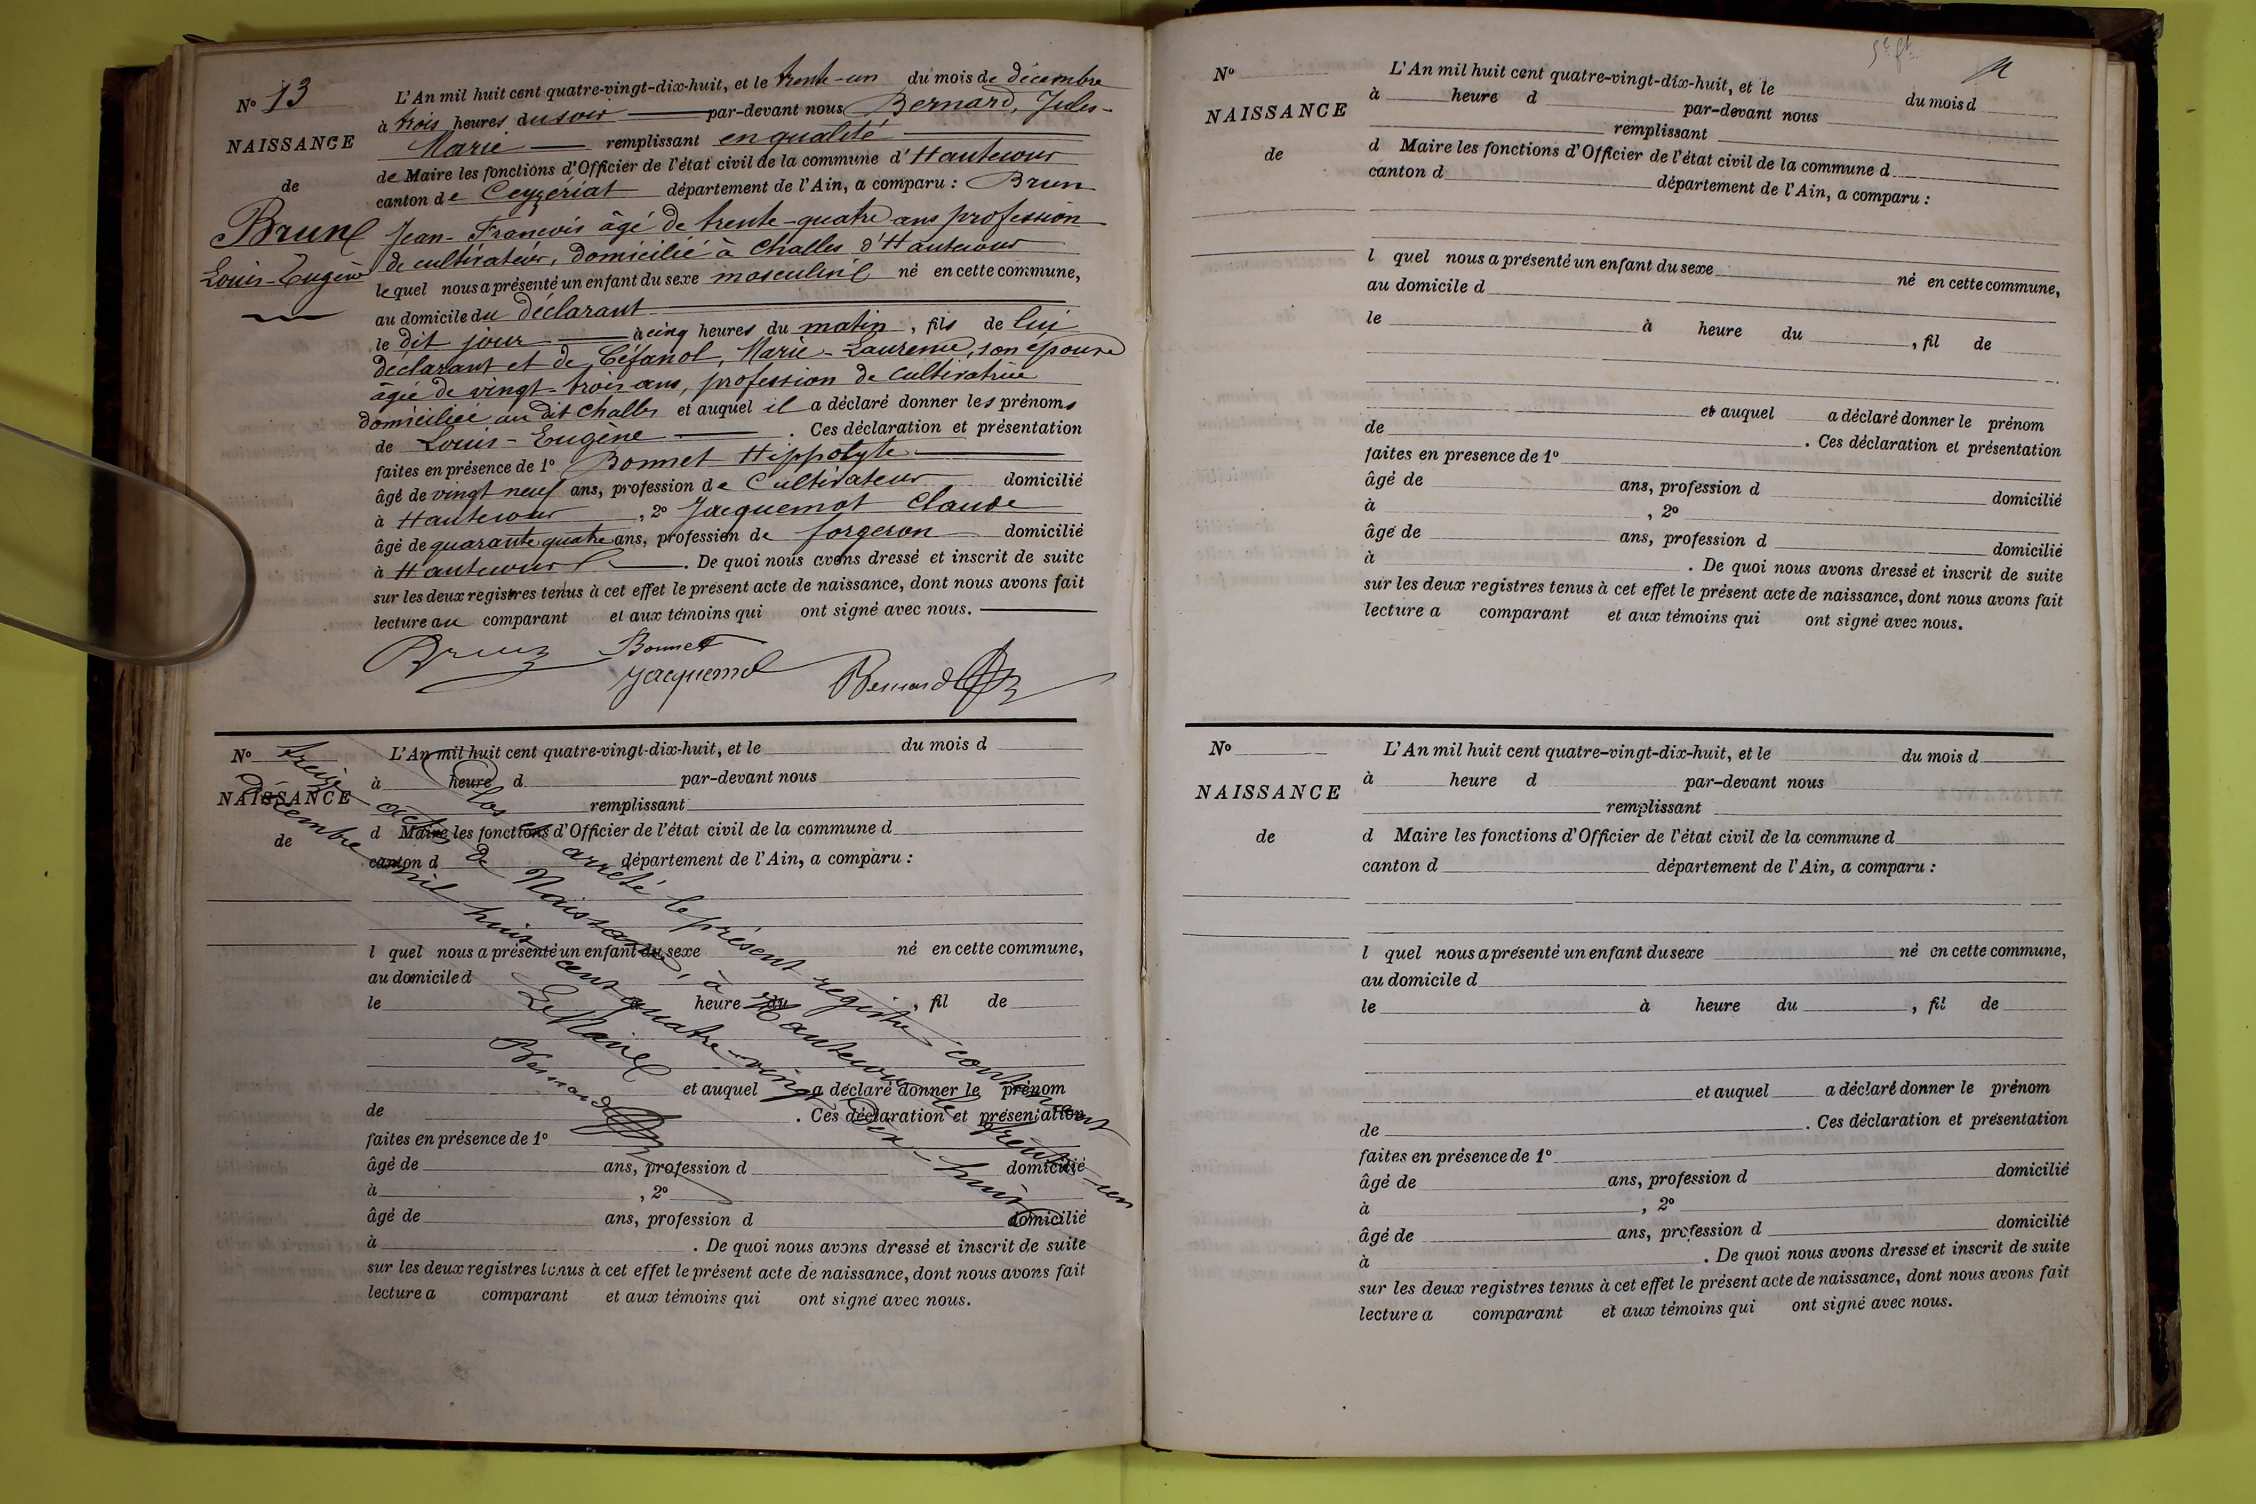 N° 13
NAISSANCE
de
Brun
Louis-Eugène
L'An mil huit cent quatre-vingt-dix-huit, et le trente-un du mois de décembre
à trois heures du soir par-devant nous Bernard, Jules-
Marie remplissant en qualité
de Maire les fonctions d'Officier de l'état civil de la commune d'Hautecour
canton de Ceyzériat département de l'Ain, a comparu : Brun
Jean-François âgé de trente-quatre ans profession
de cultivateur, domicilié à Challes d'Hautecour
lequel nous a présenté un enfant du sexe masculin né en cette commune,
au domicile du déclarant
le dit jour à cinq heures du matin, fils de lui
déclarant et de Marie-Laurence, son épouse
âgée de vingt-trois ans, profession de cultivatrice
domiciliée au dit Challes et auquel il a déclaré donner les prénoms
de Louis-Eugène . Ces déclaration et présentation
faites en présence de 1° Bonnet Hippolyte
âgé de vingt neuf ans, profession de Cultivateur domicilié
à Hautecour , 2° Jacquemot Claude
âgé de quarante quatre ans, profession de forgeron domicilié
à Hautecour . De quoi nous avons dressé et inscrit de suite
sur les deux registres tenus à cet effet le présent acte de naissance, dont nous avons fait
lecture au comparant et aux témoins qui ont signé avec nous.
Brun Bonnet
Jacquemot Bernard
N°
NAISSANCE
de
L'An mil huit cent quatre-vingt-dix-huit, et le du mois d
à heure d par-devant nous
remplissant
d Maire les fonctions d'Officier de l'état civil de la commune d
canton d département de l'Ain, a comparu :
l quel nous a présenté un enfant du sexe né en cette commune,
au domicile d
le à heure du , fil de
et auquel a déclaré donner le prénom
de . Ces déclaration et présentation
faites en présence de 1°
âgé de ans, profession d domicilié
à , 2°
âgé de ans, profession d domicilié
à . De quoi nous avons dressé et inscrit de suite
sur les deux registres tenus à cet effet le présent acte de naissance, dont nous avons fait
lecture a comparant et aux témoins qui ont signé avec nous.
Clos et arrêté le présent registre contenant
treize actes de Naissance, à Hautecour le trente-un
Décembre mil huit cent quatre-vingt dix-huit
Le Maire
Bernard
N°
NAISSANCE
de
L'An mil huit cent quatre-vingt-dix-huit, et le du mois d
à heure d par-devant nous
remplissant
d Maire les fonctions d'Officier de l'état civil de la commune d
canton d département de l'Ain, a comparu :
l quel nous a présenté un enfant du sexe né en cette commune,
au domicile d
le à heure du , fil de
et auquel a déclaré donner le prénom
de . Ces déclaration et présentation
faites en presence de 1°
âgé de ans, profession d domicilié
à , 2°
âgé de ans, profession d domicilié
à . De quoi nous avons dressé et inscrit de suite
sur les deux registres tenus à cet effet le présent acte de naissance, dont nous avons fait
lecture a comparant et aux témoins qui ont signé avec nous.
N°
NAISSANCE
de
L'An mil huit cent quatre-vingt-dix-huit, et le du mois d
à heure d par-devant nous
remplissant
d Maire les fonctions d'Officier de l'état civil de la commune d
canton d département de l'Ain, a comparu :
l quel nous a présenté un enfant du sexe né en cette commune,
au domicile d
le à heure du , fil de
et auquel a déclaré donner le prénom
de . Ces déclaration et présentation
faites en présence de 1°
âgé de ans, profession d domicilié
à , 2°
âgé de ans, profession d domicilié
à . De quoi nous avons dressé et inscrit de suite
sur les deux registres tenus à cet effet le présent acte de naissance, dont nous avons fait
lecture a comparant et aux témoins qui ont signé avec nous.